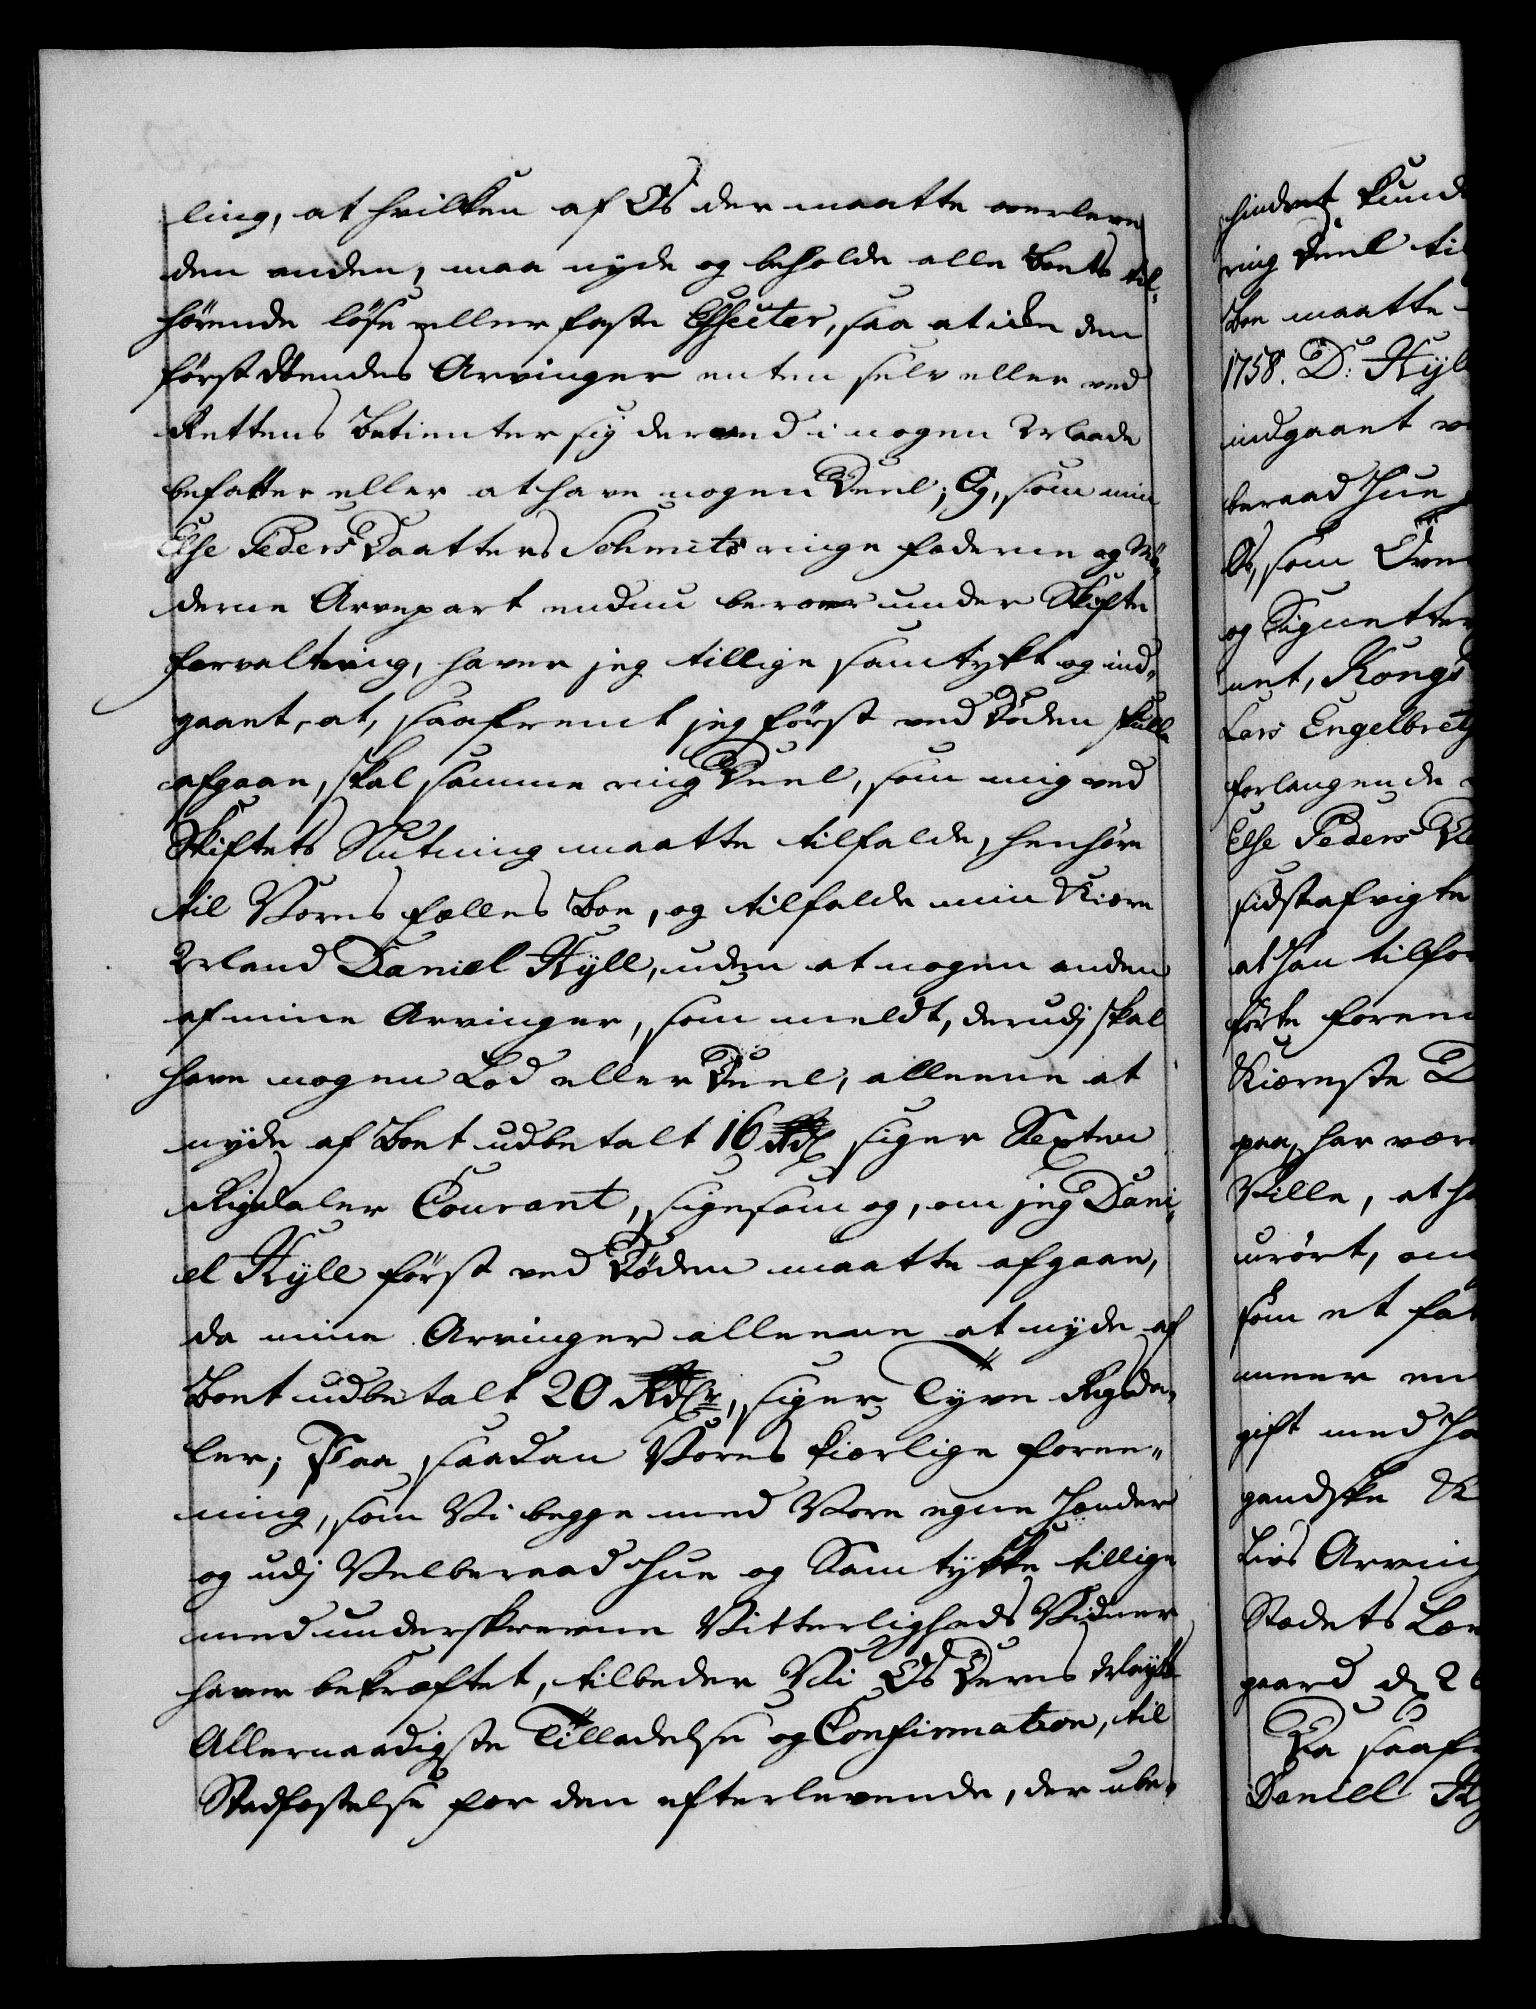 ling, at hvilken af Os der maatte overleve
den anden, maa nyde og beholde alle Boets til-
hørende løse eller faste Effecter, saa at icke den
først døendes Arvinger enten selv eller ved
Rettens Betienter sig dermed i nogen Maade
befatter eller at have nogen Deel; Og, som min
Else Peders Daatters Schmits ringe Fæderne og Mø-
derne Arvepart endnu beroer under Skifte
forvaltning, haver jeg tillige samtykt og ind-
gaaet, at, saafremt jeg først ved Døden skulle
afgaae, skal samme ring Deel, som mig ved
Skiftets Slutning maatte tilfalde, henhøre
til Vores fælles Boe, og tilfalde min Kiære
Mand Daniel Kyll, uden at nogen anden
af mine Arvinger, som meldt, derudj skal
have nogen Lod eller Deel, alleene at
nyde af Boet udbetalt 16 Rdr siger Sexten
Rigsdaler Courant, ligesom og, om jeg Dani-
el Kyll først ved Døden maatte afgaae,
da mine Arvinger alleene at nyde af
Boet udbetalt 20 Rdlr, siger Tyve Rigsda-
ler; Paa saadan Vores kiærlige Foree-
ning, som Vi begge med Vore egne Hænder
og udj Velberaad Hue og Samtykke tillige
med underskrevne Vitterligheds Vidner
haver bekræftet, tilbeder Vi Os Deres Mayts
Allernaadigste Tilladelse og Confirmation, til
Stadfæstelse for den efterlevende, der ube-
hindret kunde
ring Deel til
Boe maatte
1758. D: Kyl
indgaaet
beraad Hue
Os, som
og Signetter
net, Kongs
Lars Engelbretz
forlangende
Else Peders
sidstafvigte
at Han tilfor
førte foren
Kiæreste D
paa, har være
Ville, at h
urørt, om
som et fæ
meer en
gift med Ha
gandske
Livs Arving
Stadets
gaard d. 2
Da saaf
Daniel Ky